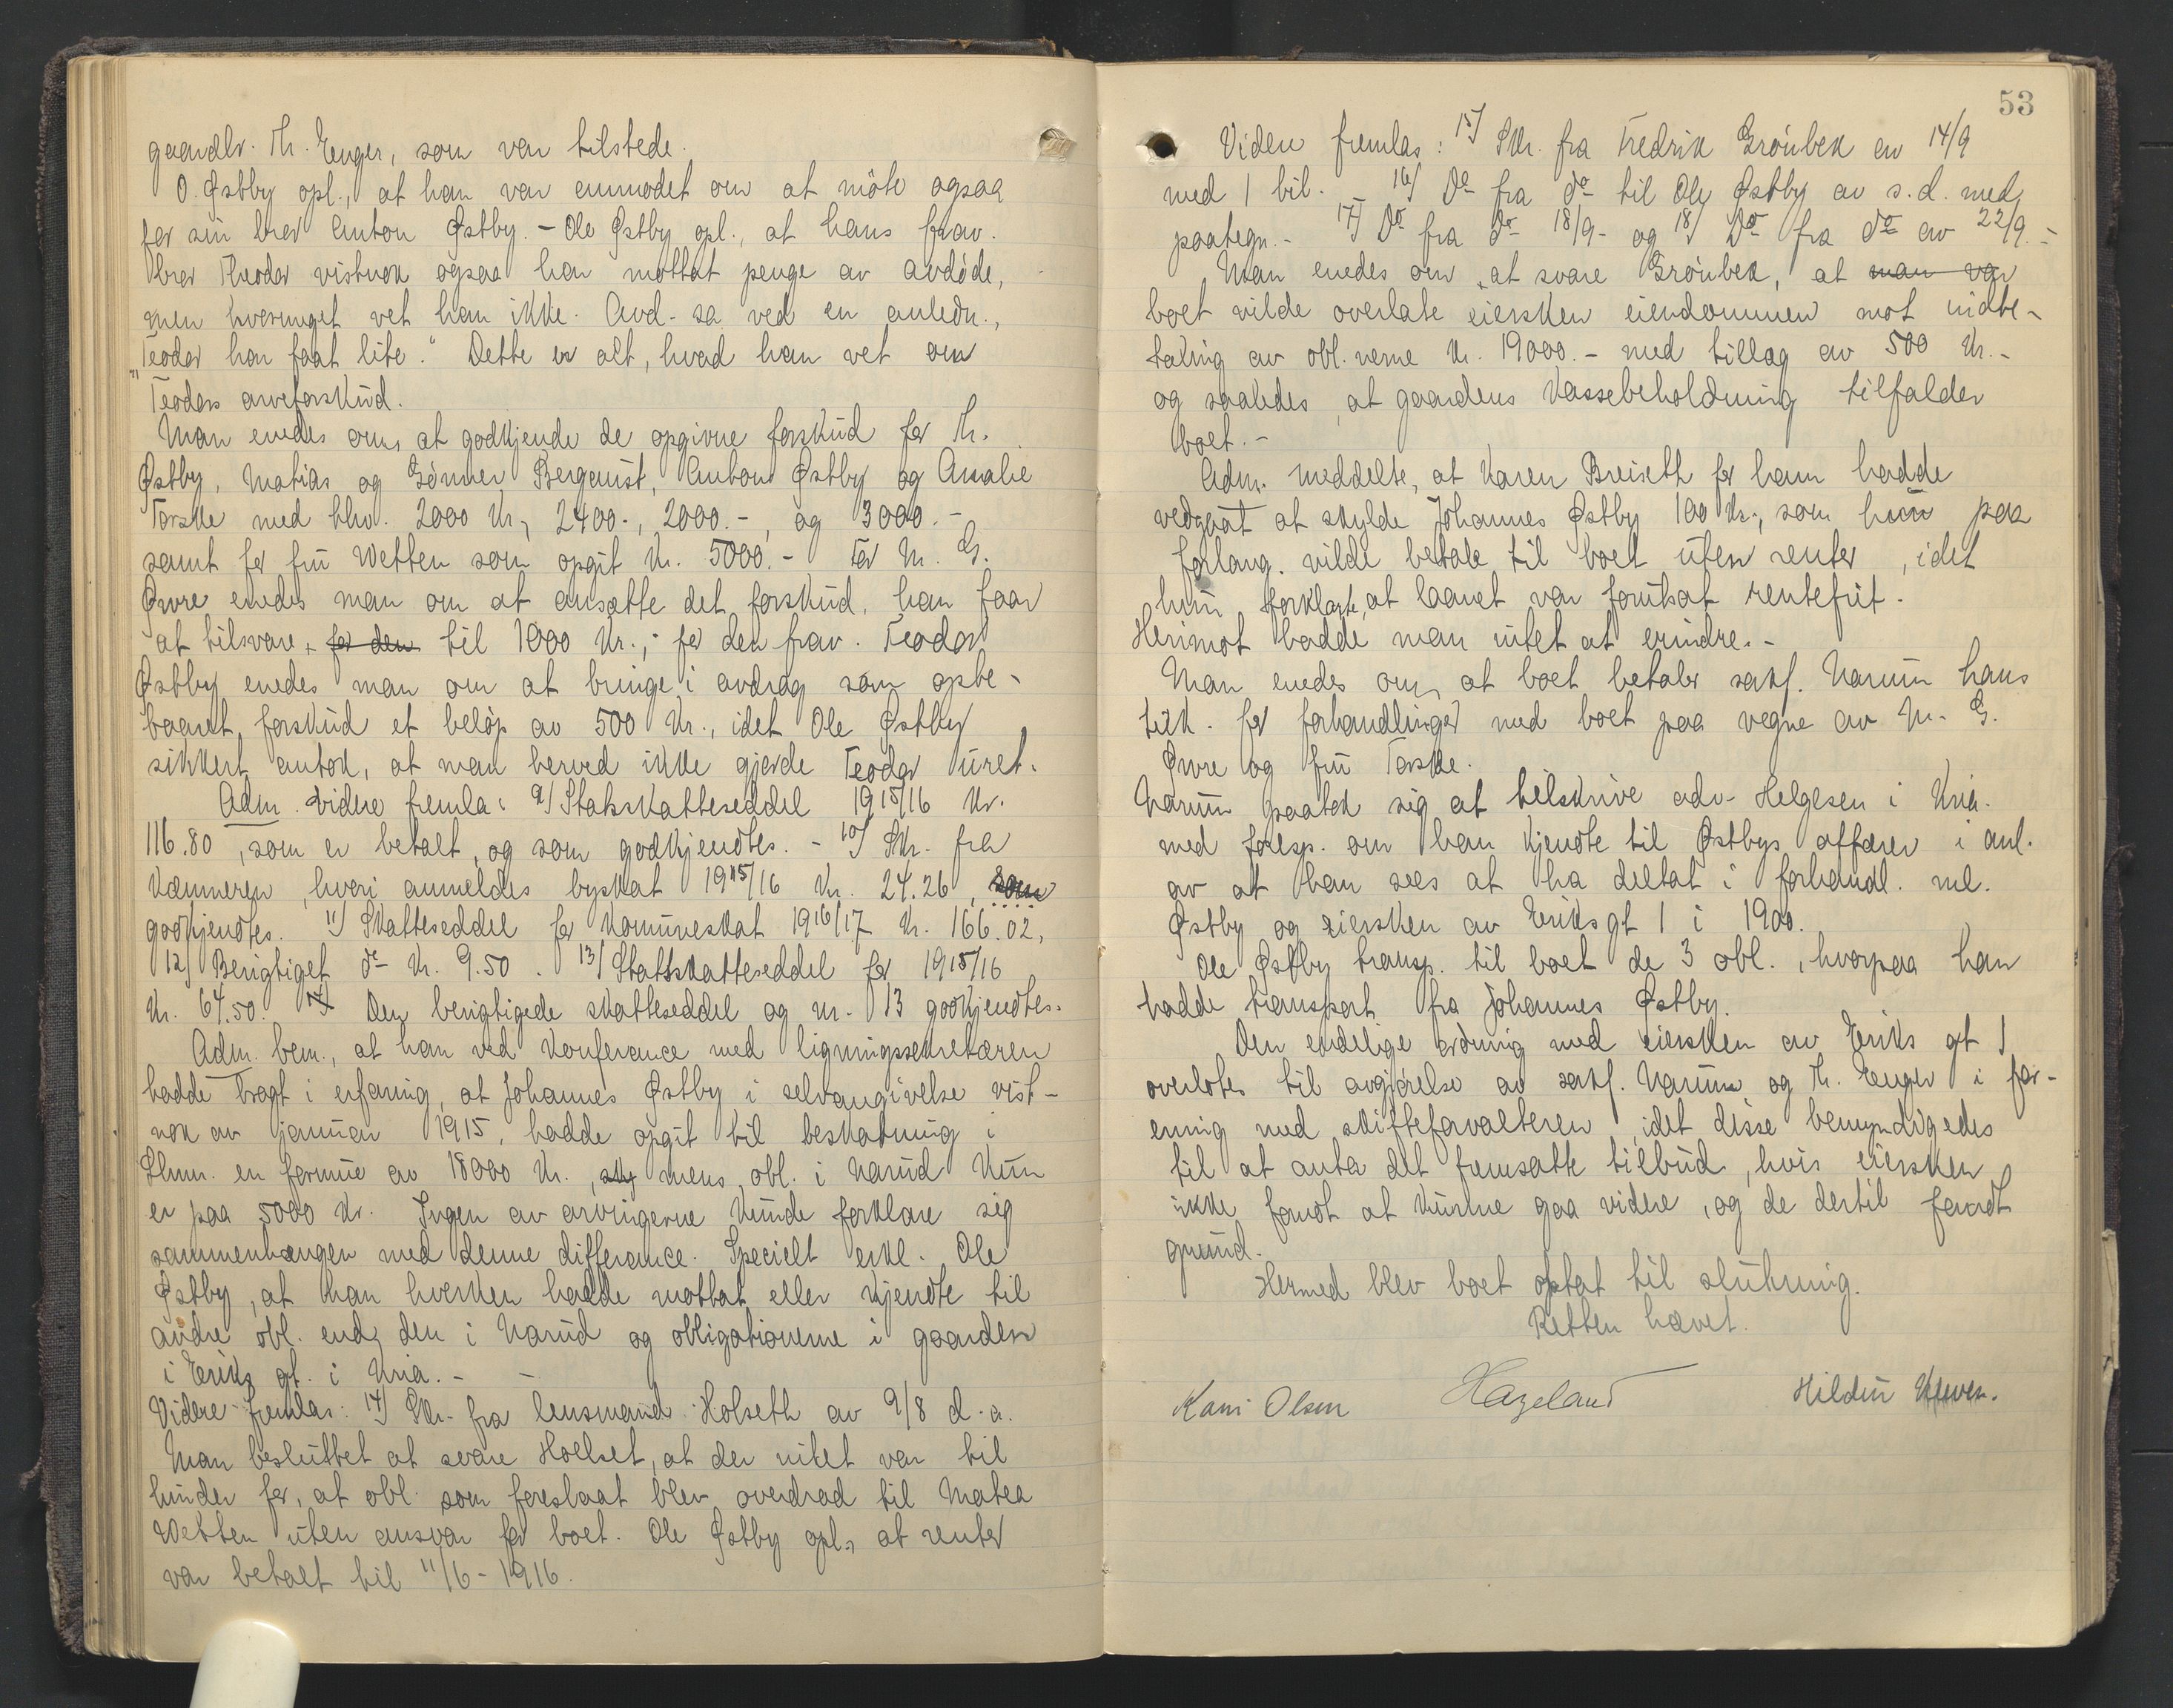 gaardbr. Kr. Enger, som var tilstede.
O. Østby opl., at han var anmodet om at möte ogsaa
for sin bror Anton Østby. - Ole Østby opl., at hans frav.
bror Theodor vistnok ogsaa har mottat penge av avdöde,
men hvormeget vet han ikke. Avd. sa ved en anledn.,
"Teodor har faat lite." Dette er alt, hvad han vet om
Teodors arveforskud.
Man enedes om, at godkjende de opgivne forskud for Kr.
Østby, Matias og Gunner Berqauist, Anton Østby og Amalie
Torske med hhv. 2000 Kr., 2400.-, 2000.-, og 3000.-
samt for fru Wetten som opgit Kr. 5000.- For M. G.
Øvre enedes man om at ansætte det forskud, han faar
at tilsvare, for den til 1000 Kr.; for den frav. Teodor
Østby enedes man om at bringe i avdrag som opbe-
baaret forskud et belöp av 500 Kr., idet Ole Østby
sikkert antok, at man herved ikke gjorde Teodor uret.
Adm. videre fremla: 9/ Statsskatteseddel 1915/16 Kr.
116.80, som er betalt, og som godkjendtes. - 10/ Skr. fra
Kæmneren, hvori anmeldes byskat 1915/16 Kr. 24.26, som
godkjendtes. 11/ Skatteseddel for Komuneskat 1916/17 Kr. 166.02,
12/ Berigtiget do Kr. 9.50. 13/ Statsskatteseddel for 1915/16
Kr. 64.50. 14/ Den berigtigede skatteseddel og nr. 13 godkjendtes.
Adm. bem., at han ved Konferance med ligningssekretæren
hadde bragt i erfaring, at Johannes Østby i selvangivelse vist-
nok av januar 1915, hadde opgit til beskatning i
Lhmr. en formue av 18000 Kr., mens obl. i Narud Kun
er paa 5000 Kr. Ingen av arvingerne Kunde forklare sig
sammenhængen med denne differance. Specielt erkl. Ole
Østby, at han hverken hadde mottat eller Kjendte til
andre obl. end den i Narud og obligationerne i gaarden
i Eriks gt. i Kria. -
Videre fremlas: 14/ Skr. fra lensmand Holseth av 9/8 d.a.
Man besluttet at svare Hoelset, at der intet var til
hinder for, at obl. som foreslaat blev overdrad til Matea
Wetten uten ansvar for boet. Ole Østby opl., at renter
var betalt til 11/6 - 1916.
53
Videre fremlas: 15/ Skr. fra Fredrik Grönbek av 14/9
med 1 bil. 16/ Do fra do til Ole Østby av s.d. med
paategn.- 17/ Do fra do 18/9- og 18/ Do fra do av 22/9.-
Man enedes om at svare Grönbek, at man var
boet vilde overlate eiersken eiendommen mot indbe-
taling av obl.nerne Kr. 19000.- med tillæg av 500 Kr.-
og saaledes at gaardens Kassebeholdning tilfalder
boet.-
Adm. meddelte, at Karen Breiseth for ham hadde
vedgaat at skylde Johannes Østby 100 Kr., som hun paa
forlang. vilde betale til boet uten renter, idet
hun forklarte, at laanet var forutsat rentefrit.
Herimot hadde man intet at erindre.-
Man enedes om, at boet betaler sakf. Narum hans
tilk. for forhandlinger med boet paa vegne av M. G.
Øvre og fru Torske.
Narum paatok sig at tilskrive adv. Helgesen i Kria.
med foresp. om han Kjendte til Østbys affærer i anl.
av at han sees at ha deltat i forhandl. ml.
Østby og eiersken av Eriksgt 1 i 1900.
Ole Østby transp. til boet de 3 obl., hvorpaa han
hadde transport fra Johannes Østby.
Den endelige ordning med eiersken av Eriks gt 1
overlotes til avgjörelse av sakf. Narum og Kr. Enger i for-
ening med skifteforvalteren, idet disse bemyndigedes
til at anta det fremsatte tilbud, hvis eiersken
ikke fandt at Kunne gaa videre, og de dertil fandt
grund.
Hermed blev boet optat til slutning.
Retten hævet.
Kani Olsen Hazeland Hildur